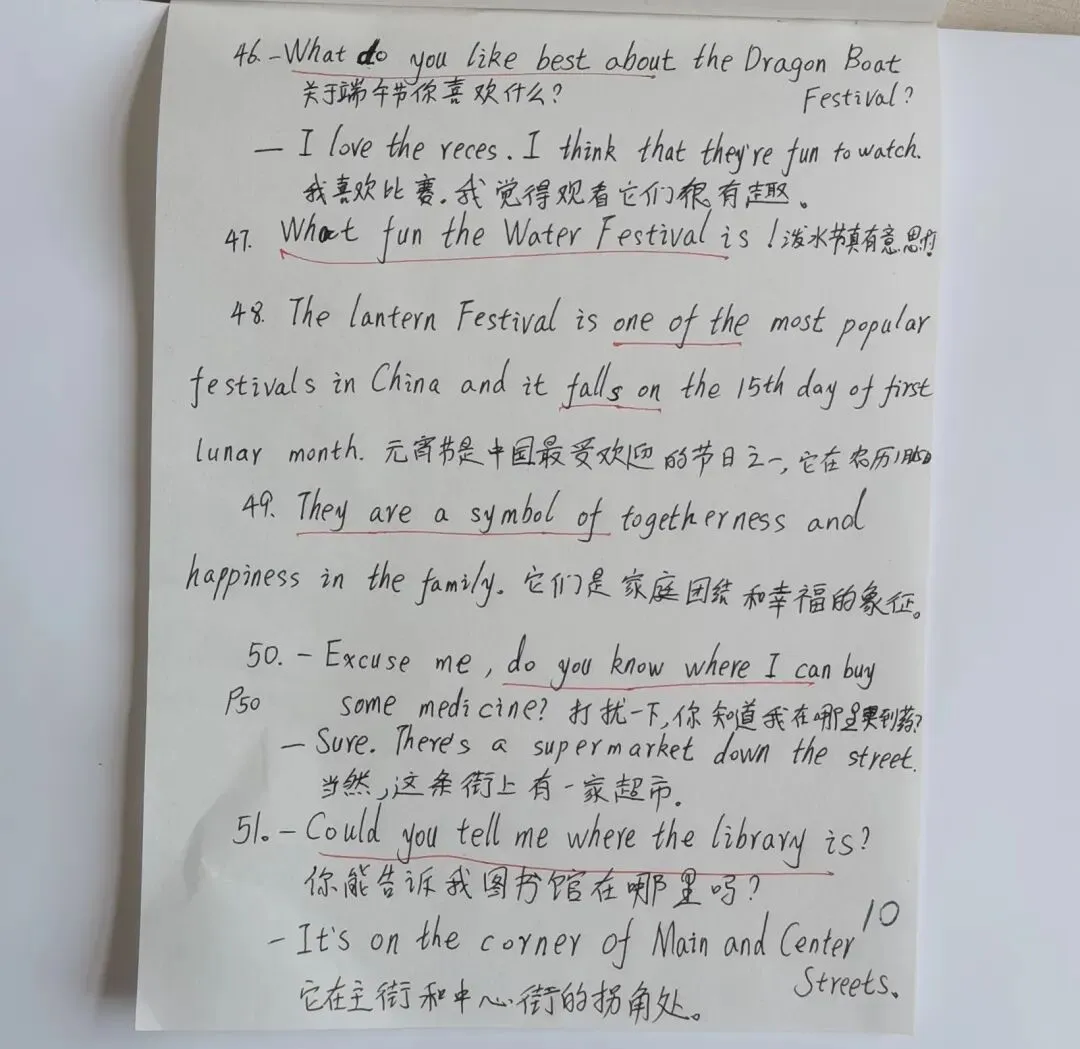 46. - What do you like best about the Dragon Boat
Festival?
关于端午节你喜欢什么?
— I love the reces. I think that they're fun to watch.
我喜欢比赛。我觉得观看它们很有趣。
47. What fun the Water Festival is! 泼水节真有意思!
48. The lantern Festival is one of the most popular
festivals in China and it falls on the 15th day of first
lunar month. 元宵节是中国最受欢迎的节日之一,它在农历1月15日
49. They are a symbol of togetherness and
happiness in the family. 它们是家庭团结和幸福的象征。
50. - Excuse me, do you know where I can buy
P50 some medicine? 打扰一下,你知道我在哪里买到药?
— Sure. There's a supermarket down the street.
当然,这条街上有一家超市.
51. - Could you tell me where the library is?
你能告诉我图书馆在哪里吗?
- It's on the corner of Main and Center
Streets.
它在主街和中心街的拐角处。
10